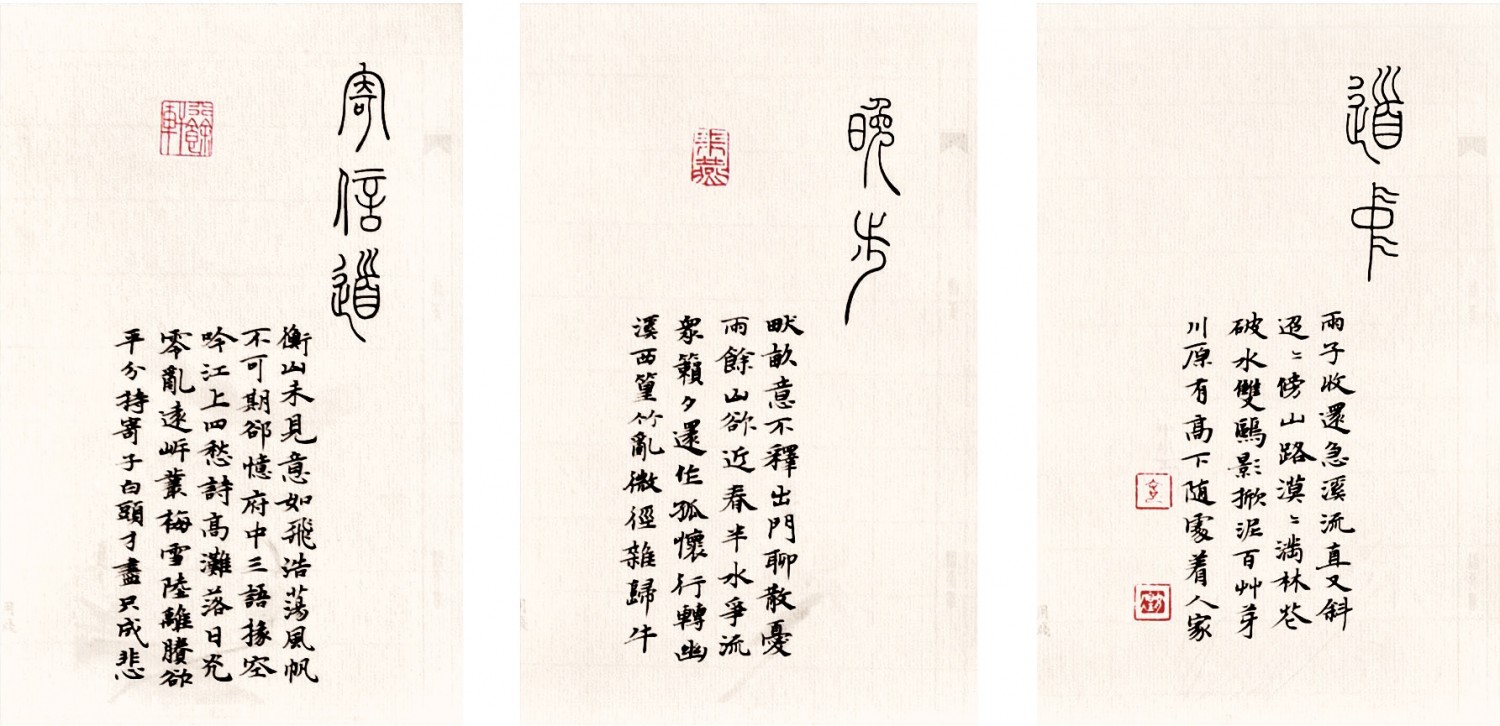 道中
雨子收還急溪流直又斜
迢〻傍山路漠〻滿林花
破水雙鷗影掀泥百艸芽
川原有高下随處着人家
晚步
畎畝意不釋出門聊散憂
雨餘山欲近春半水爭流
眾籟夕還作孤懷行轉幽
溪西篁竹亂微徑雜歸牛
寄信道
衡山未見意如飛浩蕩風帆
不可期卻憶府中三語掾空
吟江上四愁詩高灘落日光
零亂遠岸叢梅雪陸離賸欲
平分持寄子白頭才盡只成悲